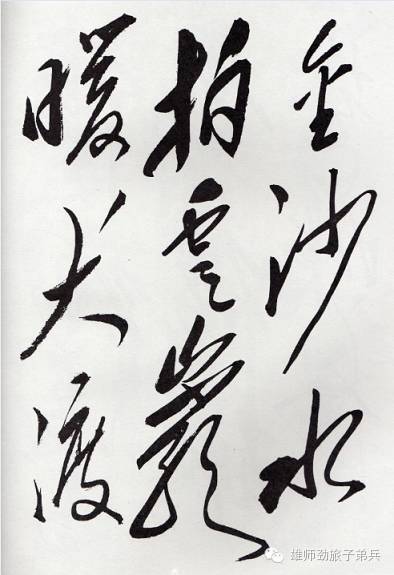 金沙水
拍雲巖
暖大渡
雄师劲旅子弟兵